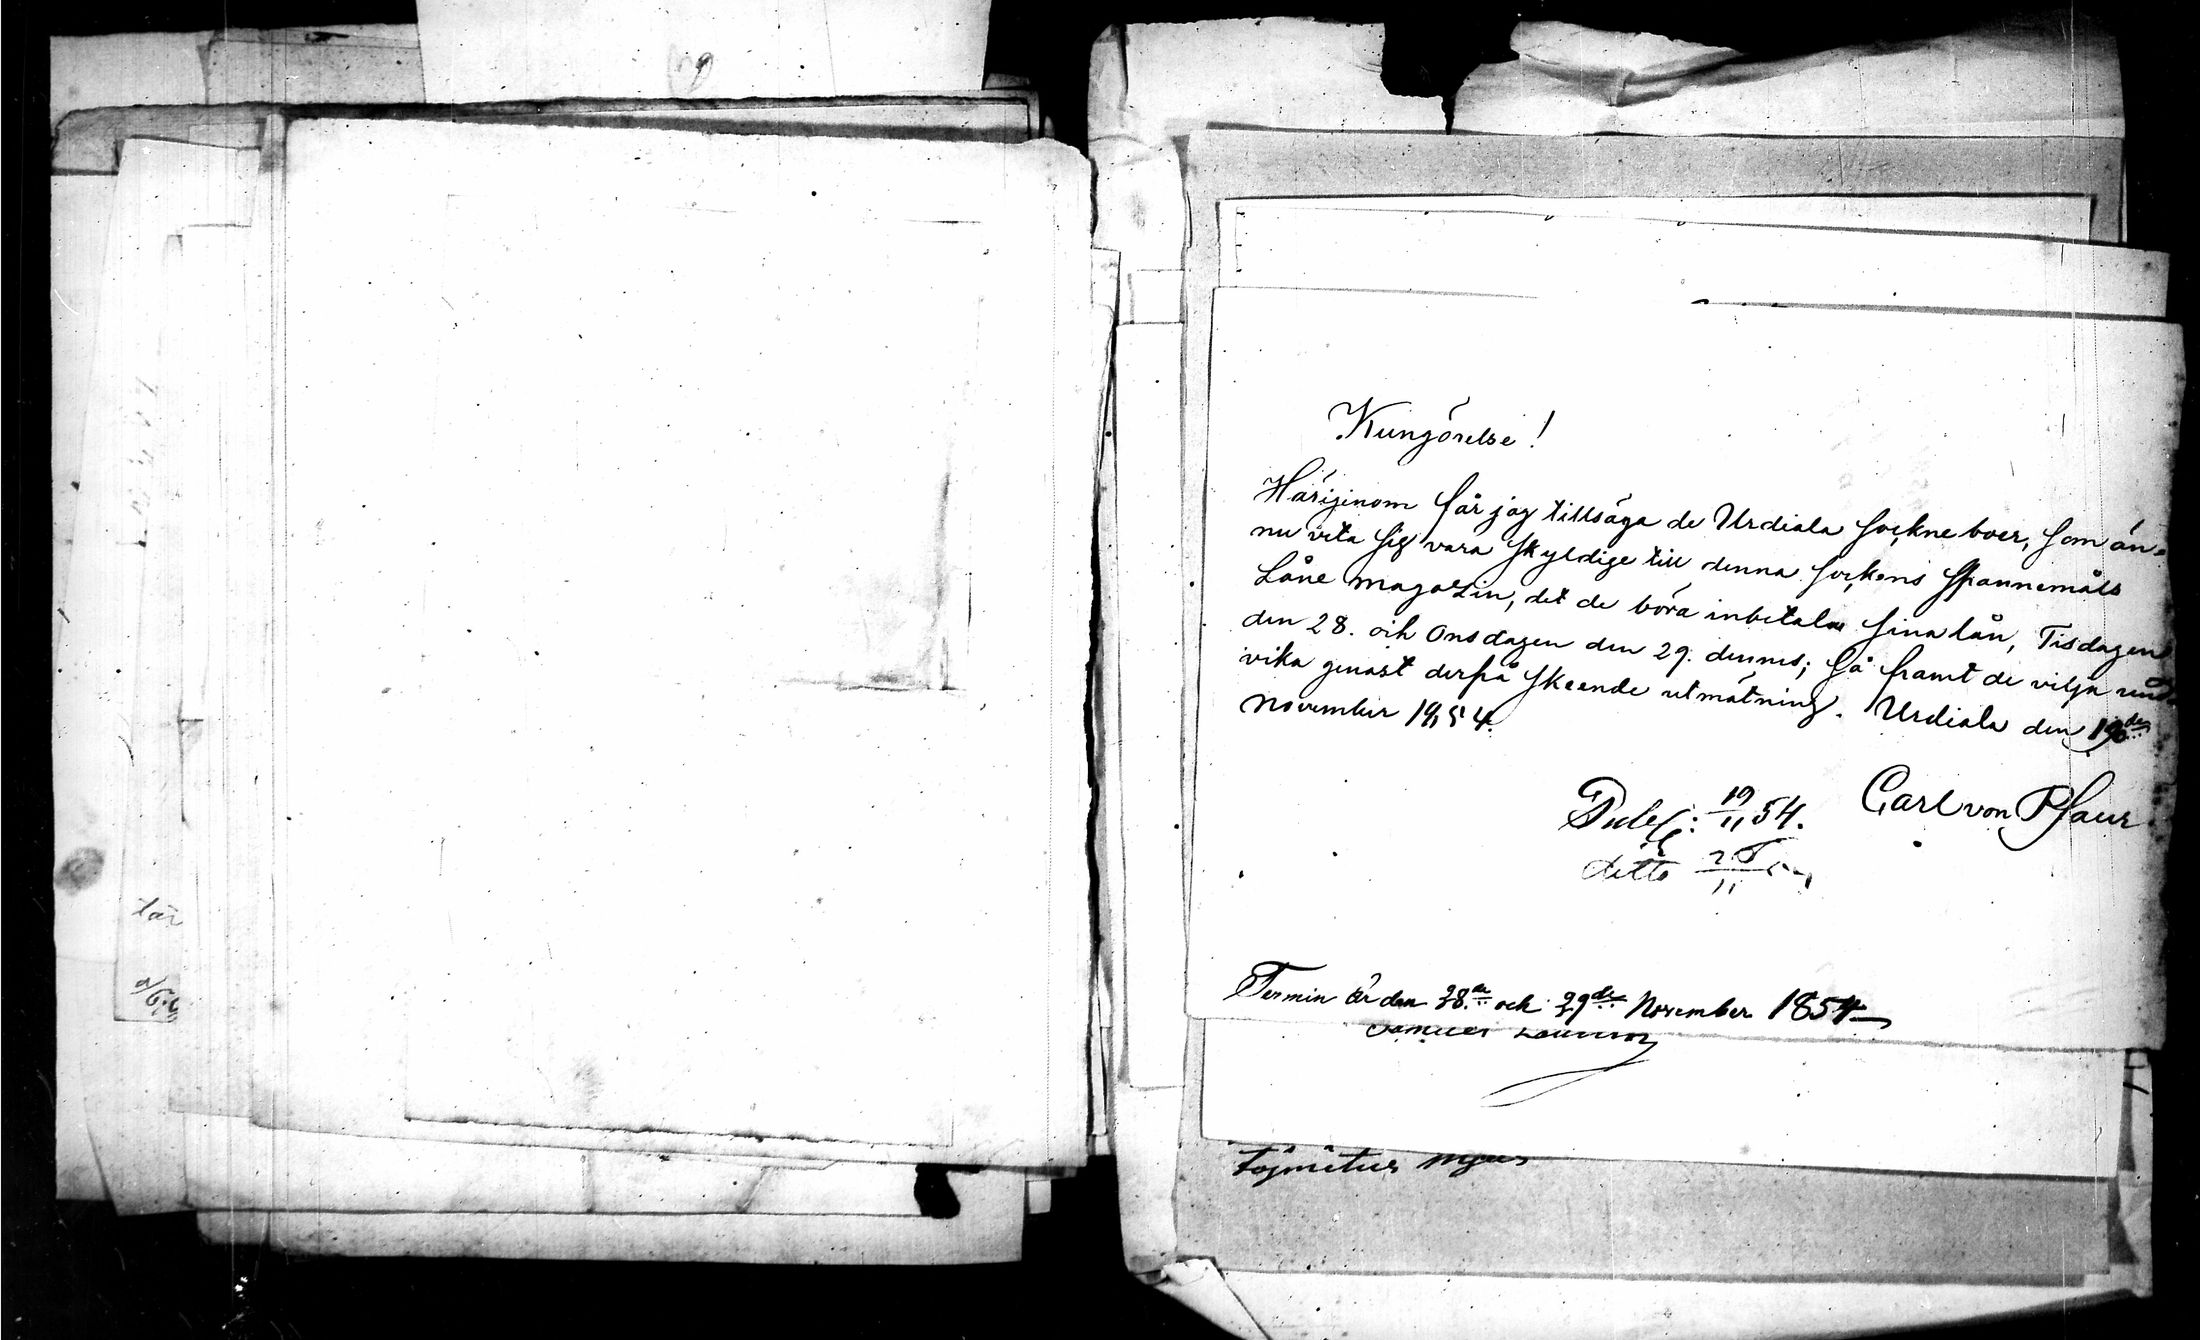 Kungörelse!
Härigenom får jag tillsäga de Urdiala Sockneboer, som än-
nu veta sig vara skyldige till denna Sockens Spannemåls
Låne magazin, det de böra inbetala sina lån, Tisdagen
den 28. och Onsdagen den 29. dennes; så framt de vilja und-
vika genast derpå skeende utmätning. Urdiala den 19de
November 1854.
Carl von Pfaur
Publ: 19/11 54.
ditto 26/11 54
Termin är den 28de och 29de November 1854
Samuel